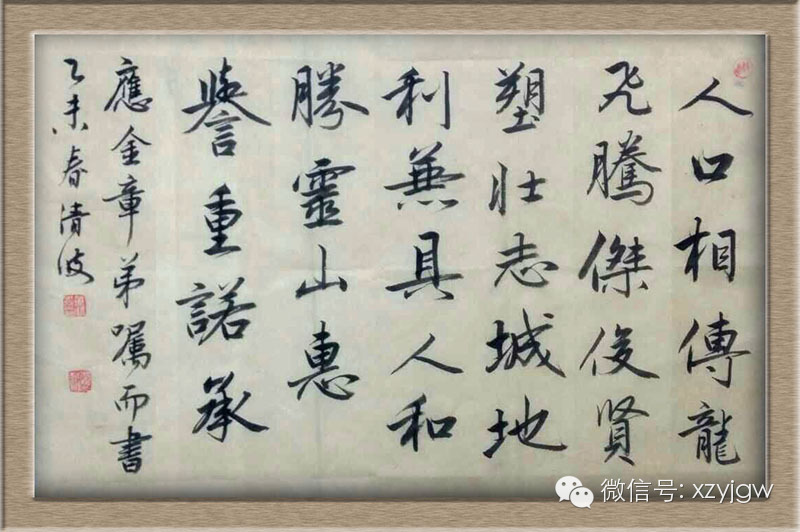 人口相傳龍
飛騰傑俊賢
塑壯志城地
利兼具人和
勝靈山惠
譽重諾承
應金章弟囑而書
乙未春清波
微信号: xzyjgw